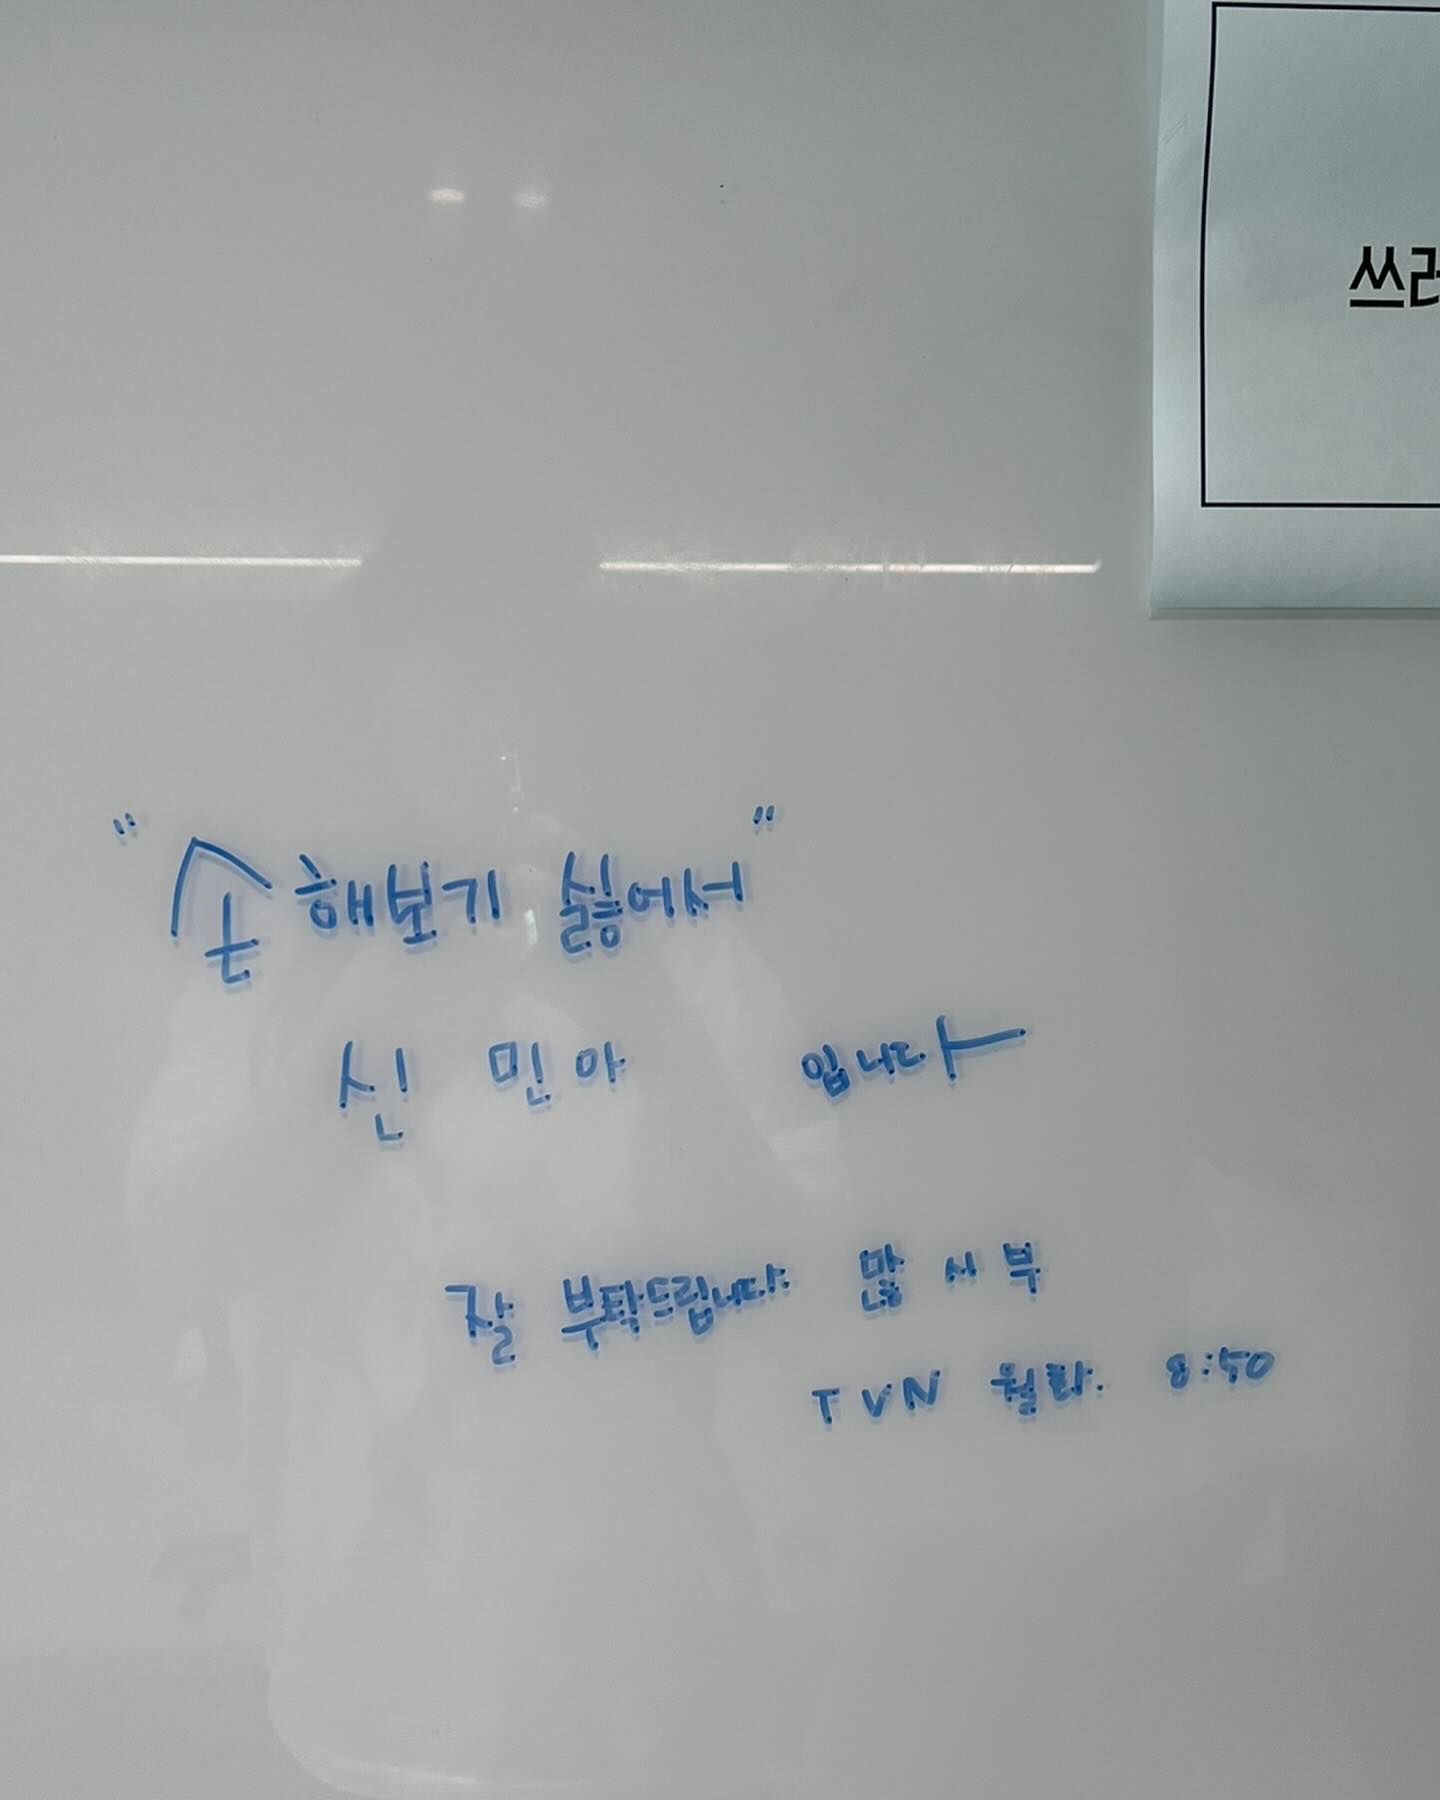 쓰러
" 손해보기 싫어서 "
신 민아 입니다
잘 부탁드립니다. 많 시 부
TVN 월화. 8:50